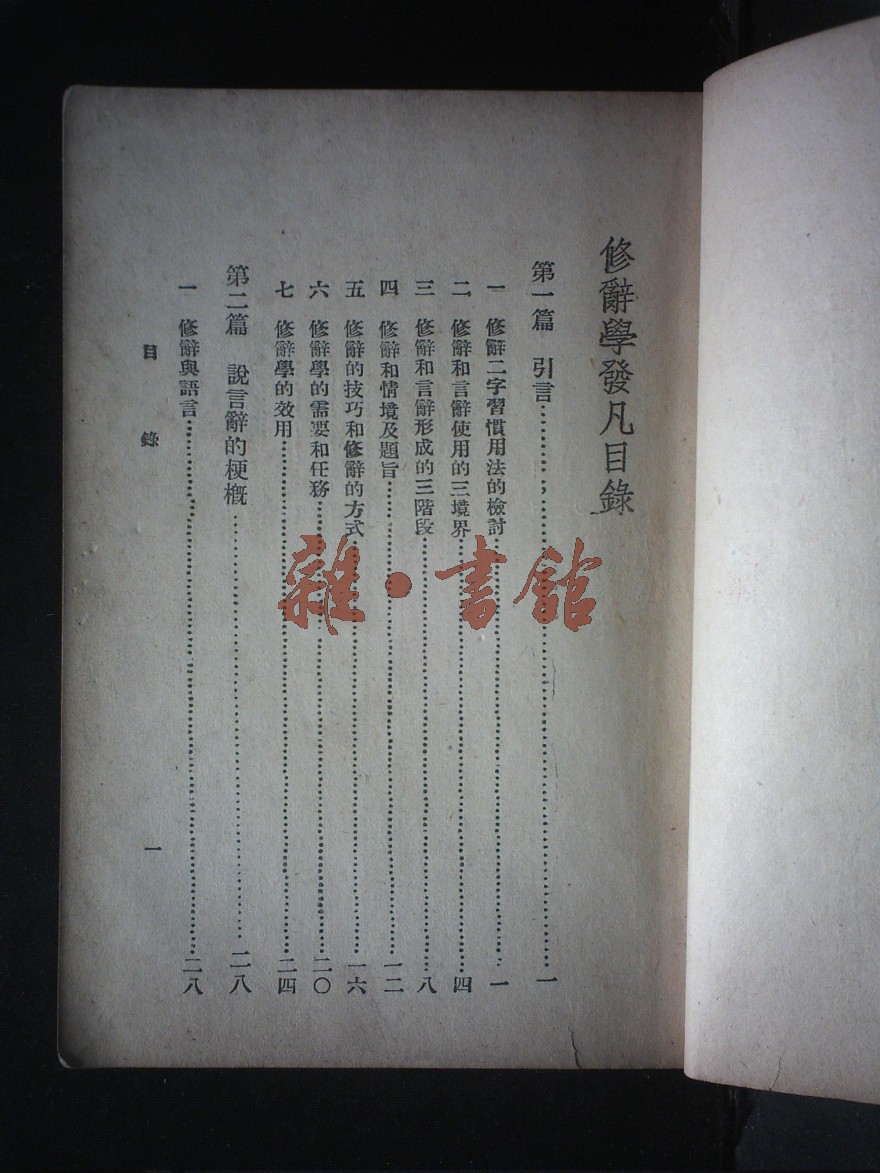 修辭學發凡目錄
第一篇　引言………………一
一　修辭二字習慣用法的檢討………………一
二　修辭和言辭使用的三境界………………四
三　修辭和言辭形成的三階段………………八
四　修辭和情境及題旨………………一二
五　修辭的技巧和修辭的方式………………一六
六　修辭學的需要和任務………………二〇
七　修辭學的效用………………二四
第二篇　說言辭的梗概………………二八
一　修辭與語言………………二八
目錄　一
雜·書館